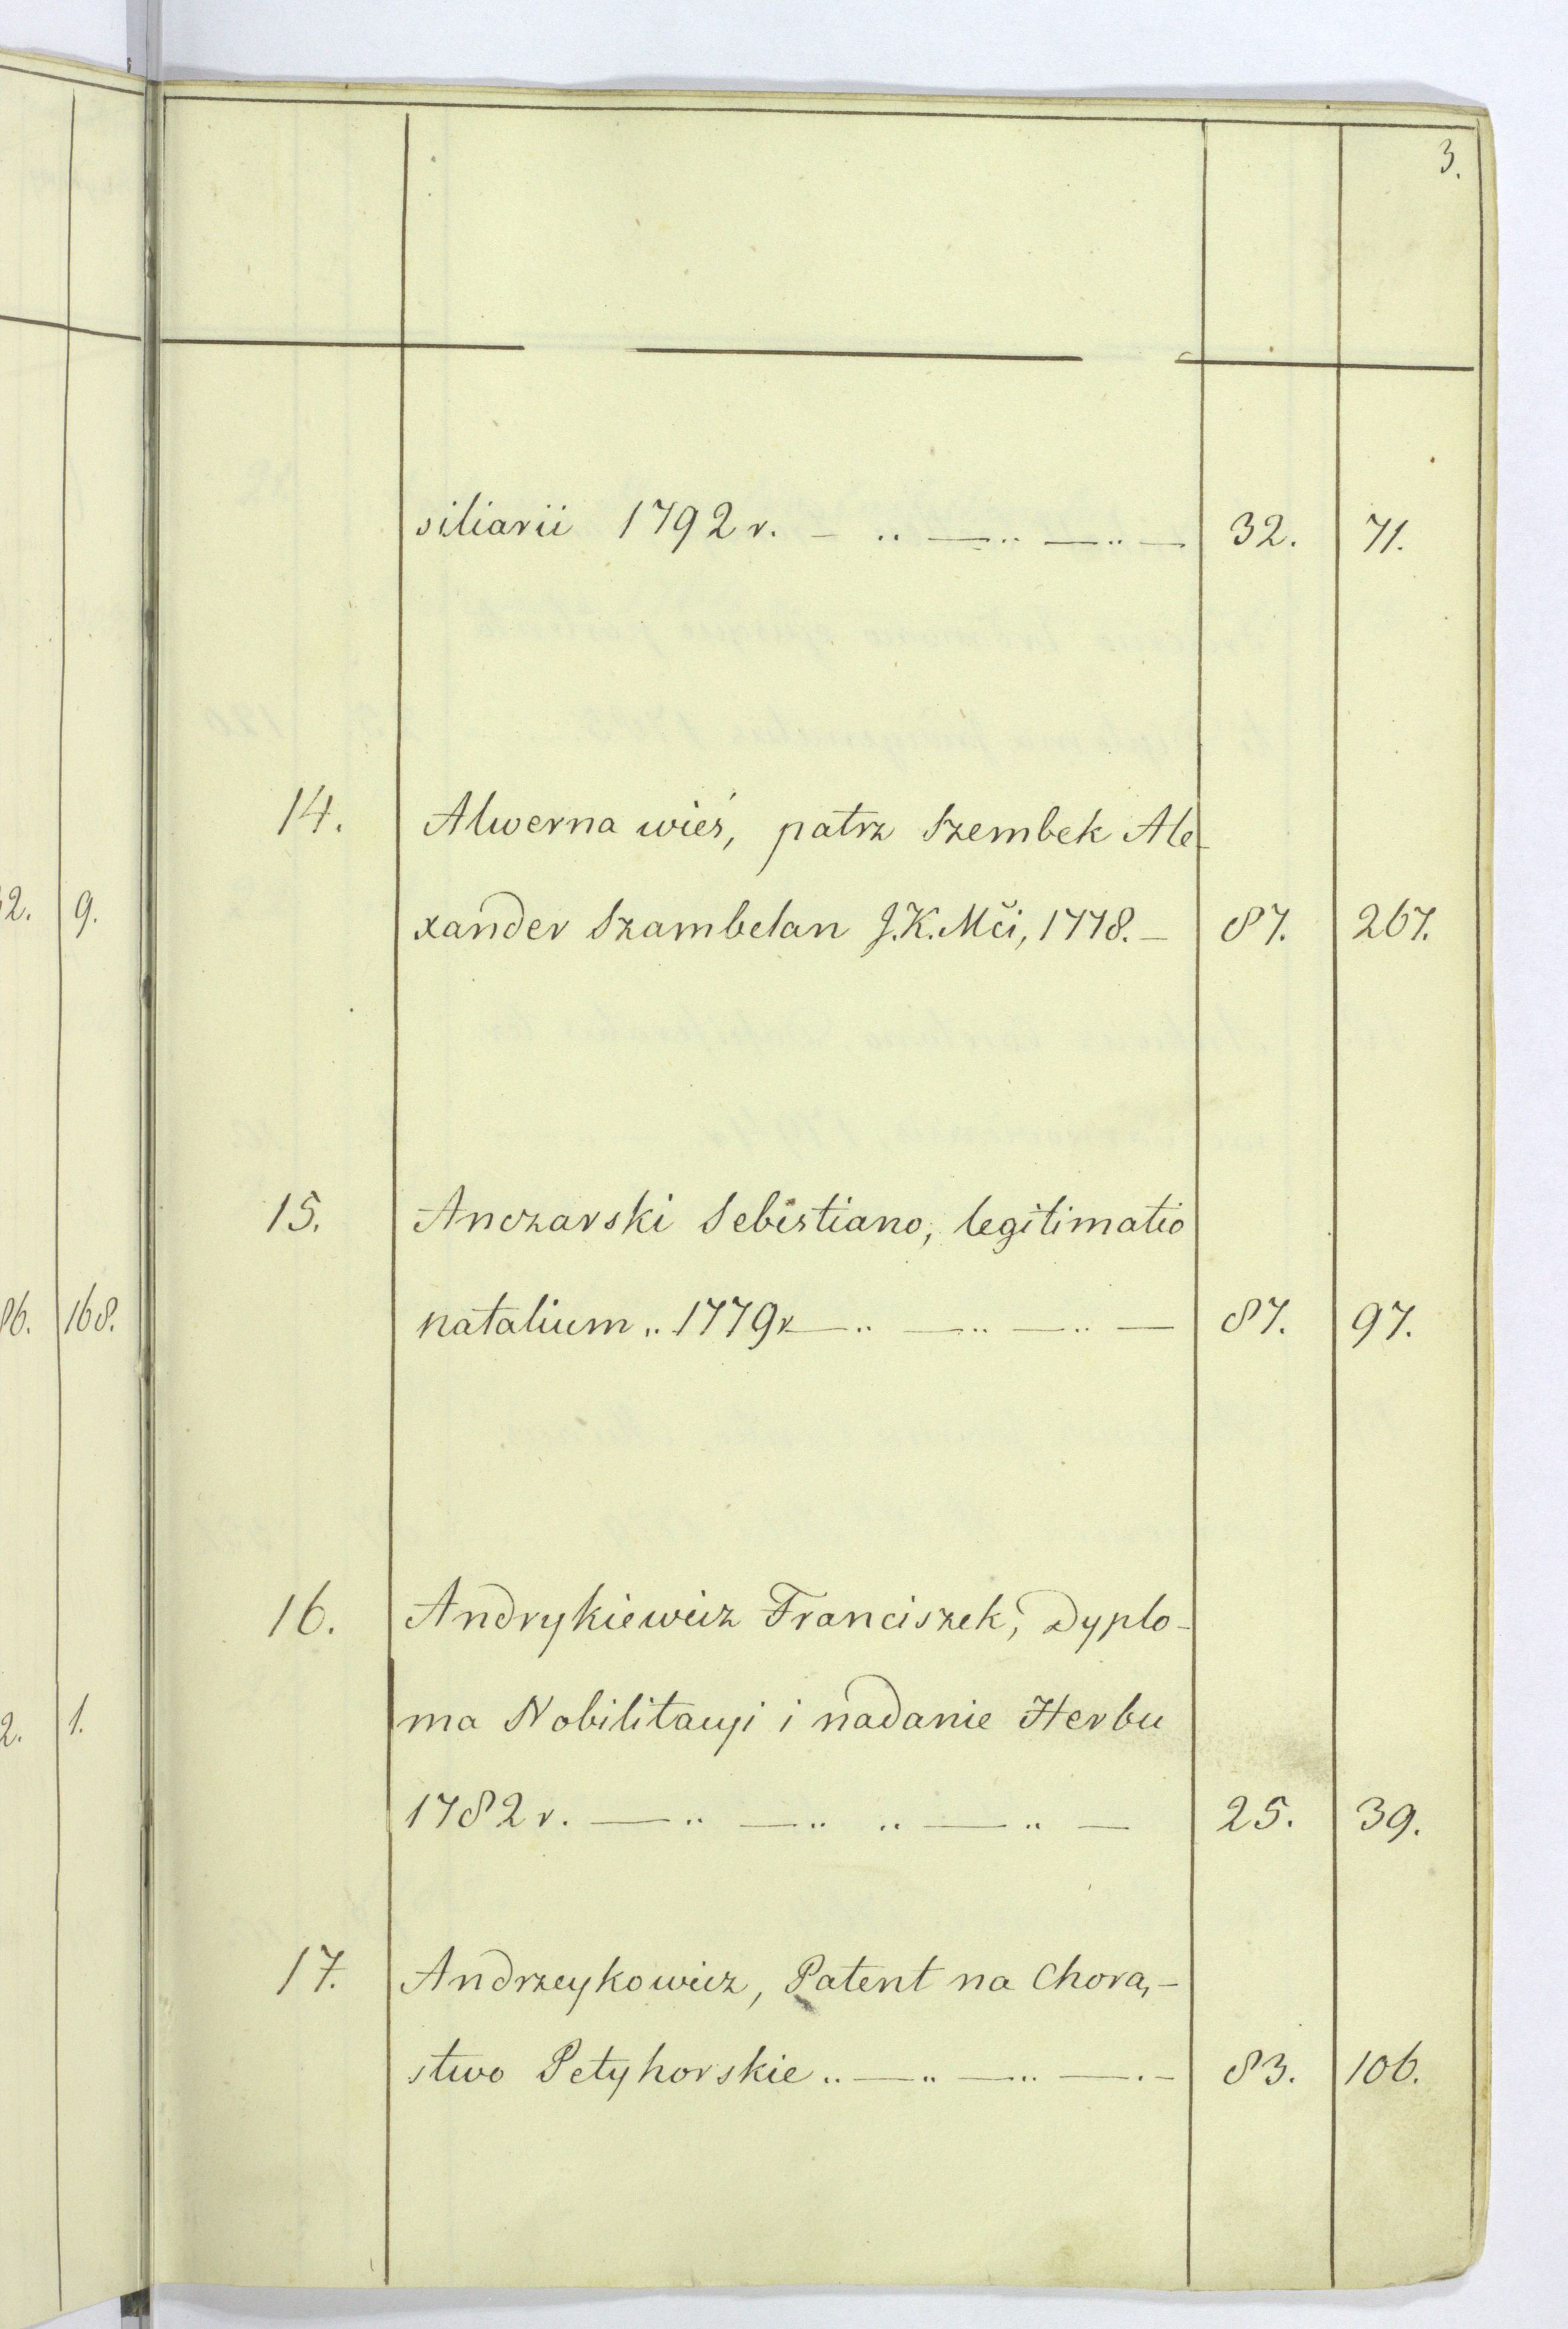 3.
siliarii 1792 r. 32. 71.
14. Alwerna wieś, patrz Szembek Ale-
xander Szambelan J.K.Mči, 1778. 87. 267.
15. Anczarski Sebistiano, legitimatio
natalium 1779r 87. 97.
16. Andrykiewicz Franciszek, Dyplo-
ma Nobilitacyi i nadanie Herbu
1782 r. 25. 39.
17. Andrzeykowicz, Patent na Chorą-
stwo Petyhorskie 83. 106.
9.
168.
1.